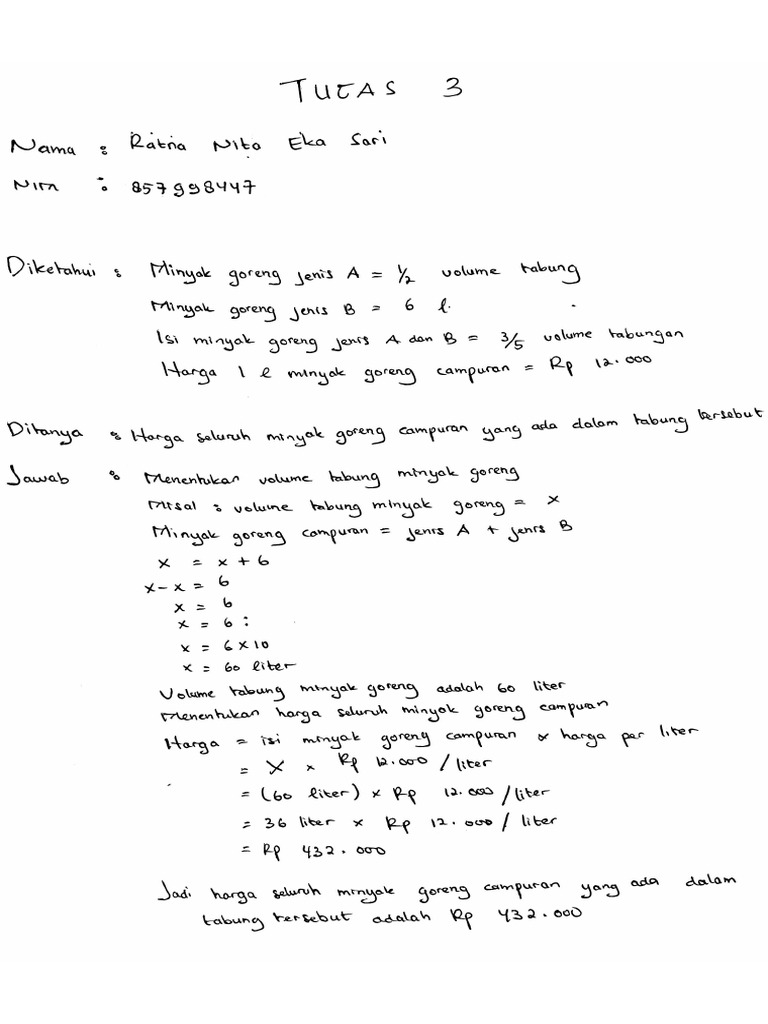 TUGAS 3
Nama : Ratna Nita Eka Sari
Nim : 857998447
Diketahui : Minyak goreng jenis A = 1/2 volume tabung
Minyak goreng jenis B = 6 l.
Isi minyak goreng jenis A dan B = 3/5 volume tabungan
Harga 1 l minyak goreng campuran = Rp 12.000
Ditanya : Harga seluruh minyak goreng campuran yang ada dalam tabung tersebut
Jawab : Menentukan volume tabung minyak goreng
Misal : volume tabung minyak goreng = x
Minyak goreng campuran = jenis A + jenis B
x = x + 6
x - x = 6
x = 6
x = 6 :
x = 6 x 10
x = 60 liter
Volume tabung minyak goreng adalah 60 liter
Menentukan harga seluruh minyak goreng campuran
Harga = isi minyak goreng campuran x harga per liter
= X x Rp 12.000 / liter
= (60 liter) x Rp 12.000 / liter
= 36 liter x Rp 12.000 / liter
= Rp 432.000
Jadi harga seluruh minyak goreng campuran yang ada dalam
tabung tersebut adalah Rp 432.000